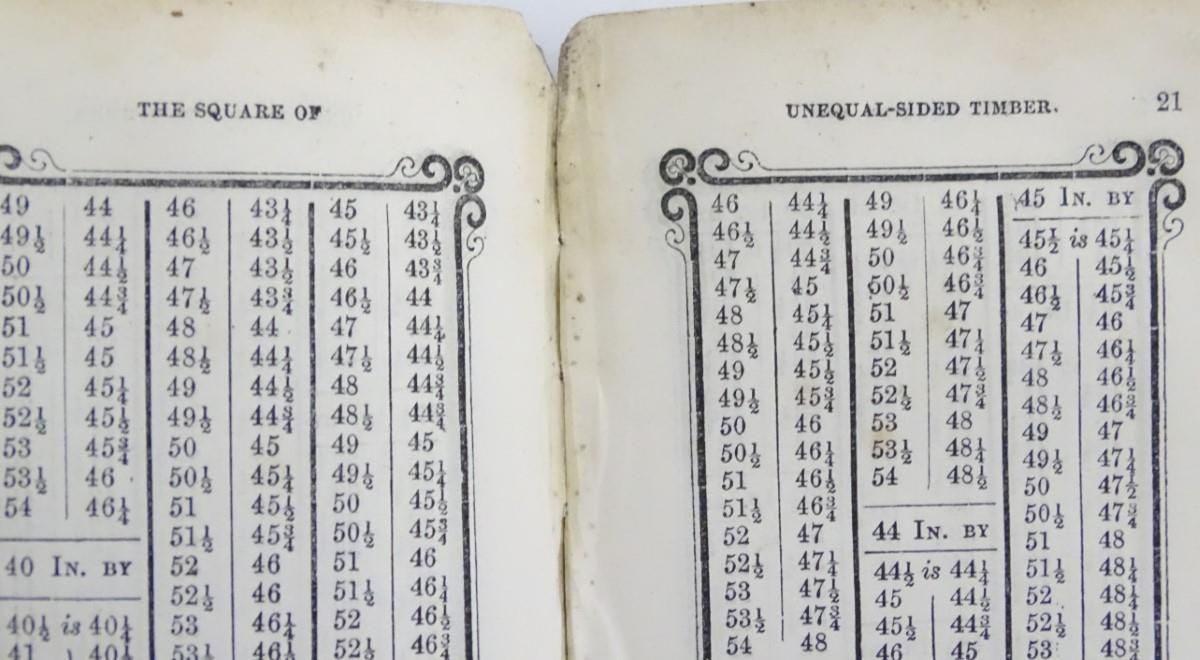 THE SQUARE OF
49 44 46 43¼ 45 43¼
49½ 44¼ 46½ 43½ 45½ 43½
50 44½ 47 43½ 46 43¾
50½ 44¾ 47½ 43¾ 46½ 44
51 45 48 44 47 44¼
51½ 45 48½ 44¼ 47½ 44½
52 45¼ 49 44½ 48 44¾
52½ 45½ 49½ 44¾ 48½ 44¾
53 45¾ 50 45 49 45
53½ 46 50½ 45¼ 49½ 45¼
54 46¼ 51 45½ 50 45½
51½ 45¾ 50½ 45¾
40 IN. BY 52 46 51 46
52½ 46 51½ 46¼
40½ is 40¼ 53 46¼ 52 46½
41 40½ 53½ 46½ 52½ 46¾
UNEQUAL-SIDED TIMBER. 21
46 44¼ 49 46¼ 45 IN. BY
46½ 44½ 49½ 46½ 45½ is 45¼
47 44¾ 50 46¾ 46 45½
47½ 45 50½ 46¾ 46½ 45¾
48 45¼ 51 47 47 46
48½ 45½ 51½ 47¼ 47½ 46¼
49 45½ 52 47½ 48 46½
49½ 45¾ 52½ 47¾ 48½ 46¾
50 46 53 48 49 47
50½ 46¼ 53½ 48¼ 49½ 47¼
51 46½ 54 48½ 50 47½
51½ 46¾ 50½ 47¾
52 47 44 IN. BY 51 48
52½ 47¼ 44½ is 44¼ 51½ 48¼
53 47½ 45 44½ 52 48¼
53½ 47¾ 45½ 44¾ 52½ 48½
54 48 46 45 53 48¾